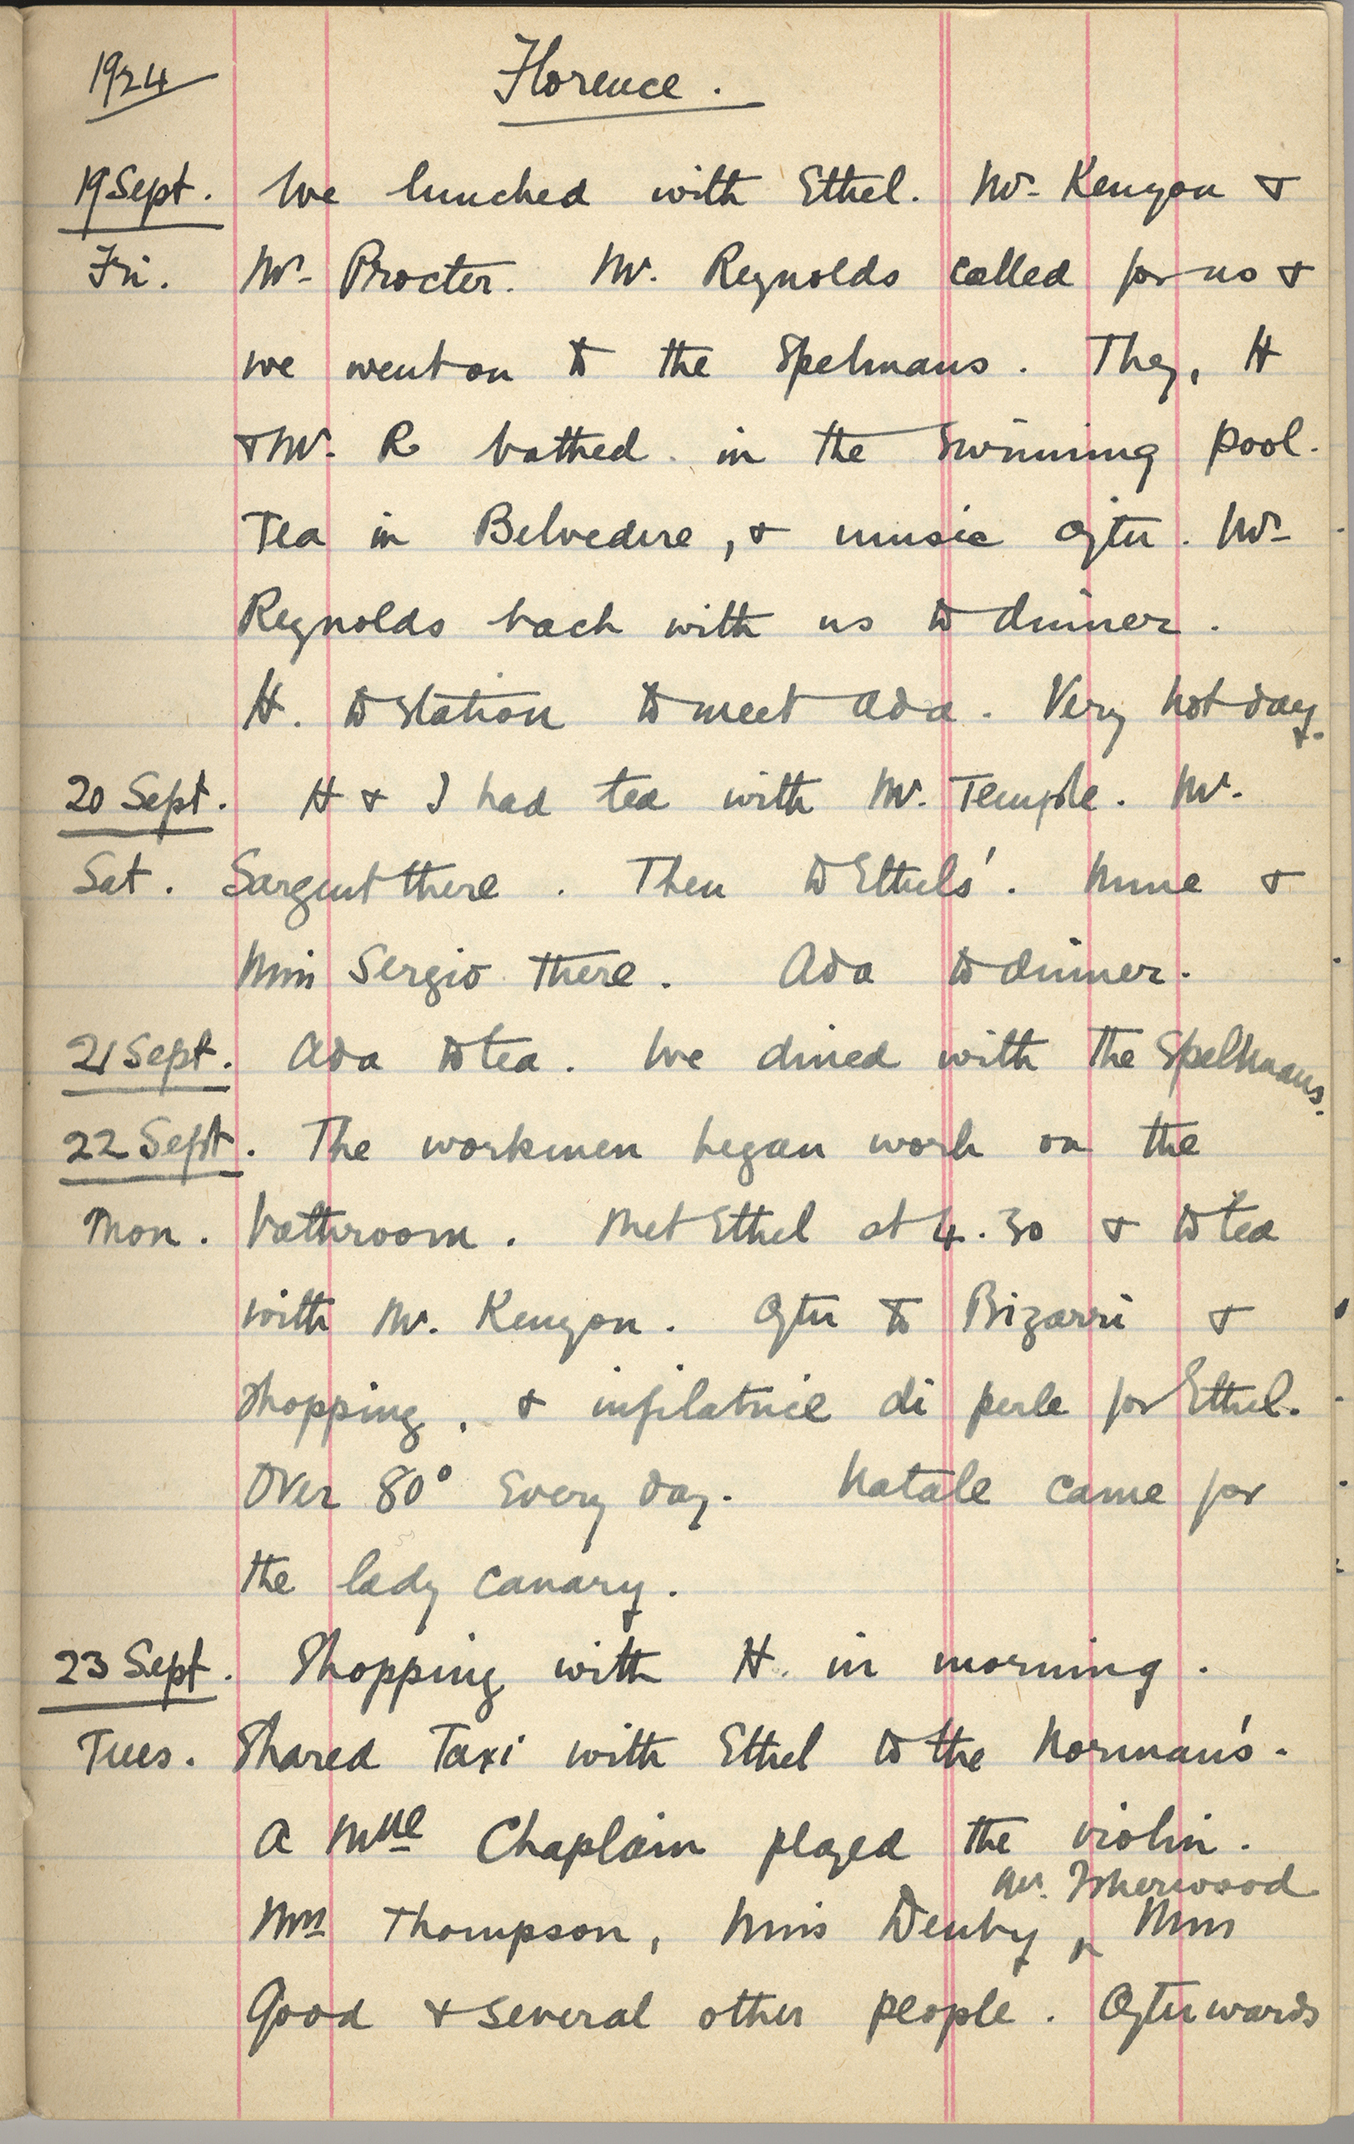 1924 Florence.
19 Sept. We lunched with Ethel. Mr. Kenyon &
Fri. Mr. Procter. Mr. Reynolds called for us &
we went on to the Spelmans. They, H
& Mr. R bathed in the swimming pool.
Tea in Belvedere, & music after. Mr.
Reynolds back with us to dinner.
H. to station to meet Ada. Very hot day.
20 Sept. H & I had tea with Mr. Temple. Mr.
Sat. Sargent there. Then to Ethels'. Mme &
Miss Sergio there. Ada to dinner.
21 Sept. Ada to tea. We dined with the Spelmans.
22 Sept. The workmen began work on the
Mon. bathroom. Met Ethel at 4.30 & to tea
with Mr. Kenyon. After to Bizarri &
shopping, & infilatrice di perle for Ethel.
Over 80° every day. Natale came for
the lady canary.
23 Sept. Shopping with H. in morning.
Tues. Shared Taxi with Ethel to the Norman's.
A Mlle Chaplain played the violin.
Mr. Isherwood
Mrs Thompson, Miss Denby, Miss
Good & several other people. Afterwards